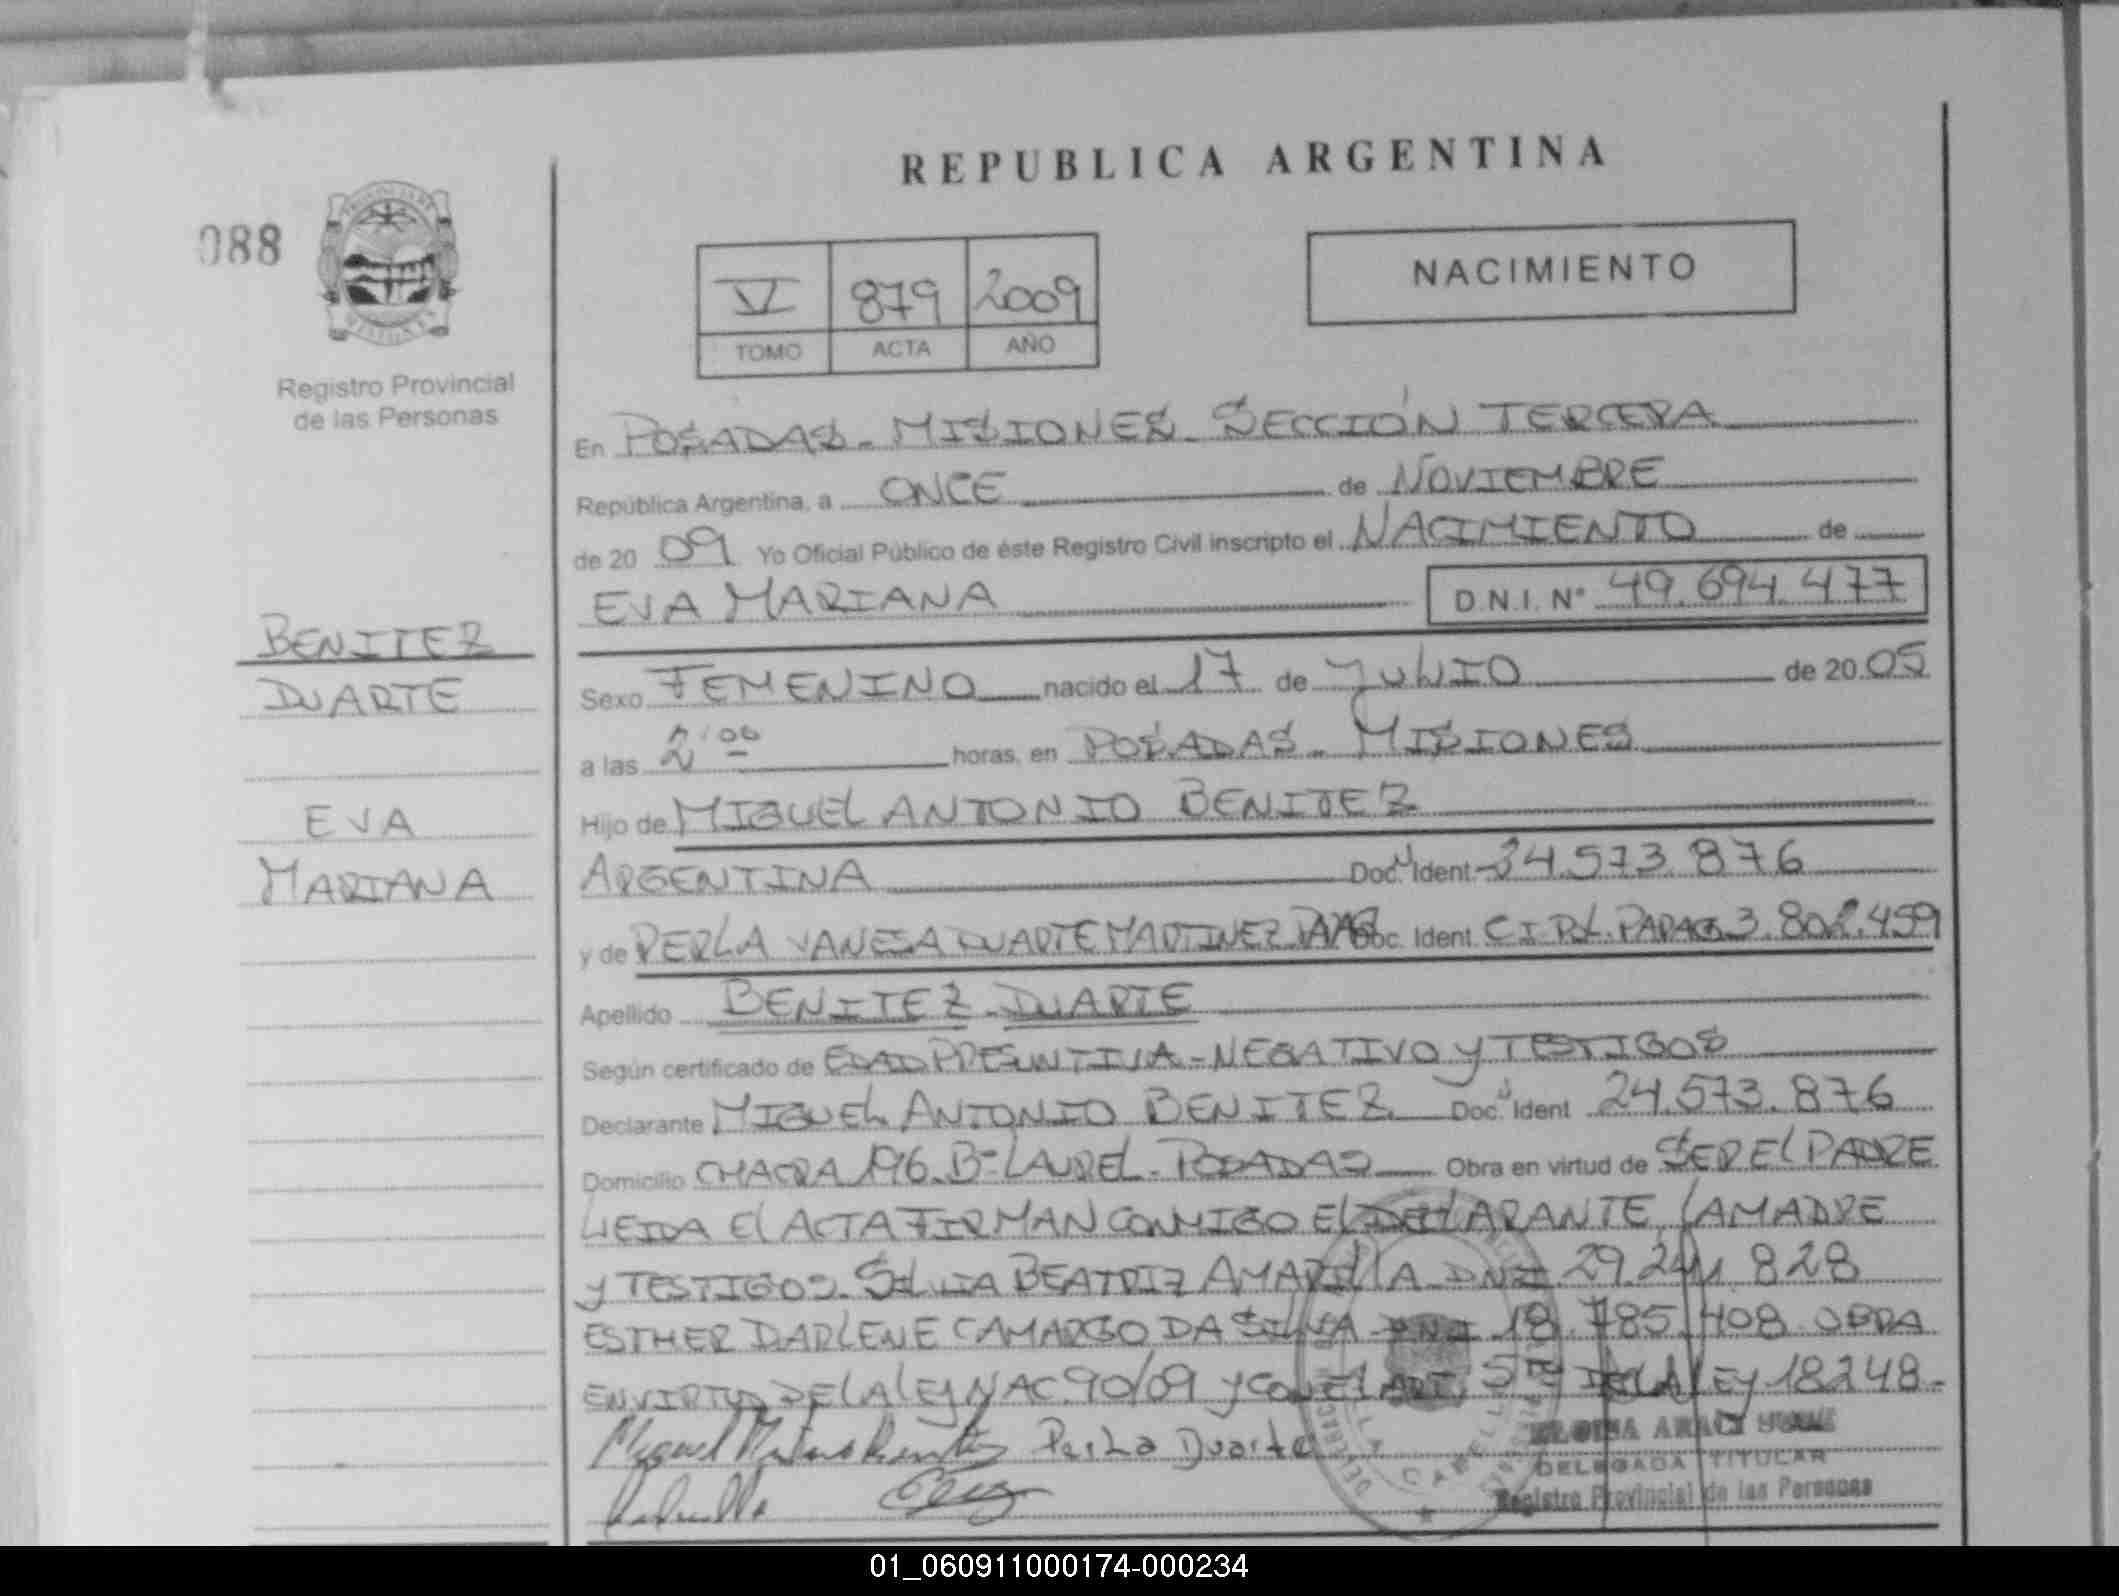 REPUBLICA ARGENTINA
088
NACIMIENTO
V 879 2009
TOMO ACTA AÑO
Registro Provincial
de las Personas
En POSADAS - MISIONES - SECCIÓN TERCERA
República Argentina, a ONCE de NOVIEMBRE
de 20 09 Yo Oficial Público de éste Registro Civil inscripto el NACIMIENTO de
EVA MARIANA D.N.I. Nº 49.694.477
BENITEZ
DUARTE
EVA
MARIANA
Sexo FEMENINO nacido el 17 de JULIO de 20 05
a las horas, en POSADAS - MISIONES
Hijo de MIGUEL ANTONIO BENITEZ
ARGENTINA Doc. Ident 24.573.876
y de PERLA VANESA DUARTE MARTINEZ Doc. Ident C I POL. PARAG 3.802.459
Apellido BENITEZ - DUARTE
Según certificado de EDAD PRESUNTIVA - NEGATIVO Y TESTIGOS
Declarante MIGUEL ANTONIO BENITEZ Doc. Ident 24.573.876
Domicilio CHACRA 196. Bº LAUREL - POSADAS Obra en virtud de SER EL PADRE
LEIDA EL ACTA FIRMAN CONMIGO EL DECLARANTE, LA MADRE
Y TESTIGOS. SILVIA BEATRIZ AMARILLA DNI 29.241.828
ESTHER DARLENE CAMARGO DA SILVA DNI 18.785.408 OBRA
EN VIRTUD DE LA LEY NAC. 90/09 Y CON EL ART. 5TO DE LA LEY 18248-
Perla Duarte
DELEGADA TITULAR
Registro Provincial de las Personas
01_060911000174-000234